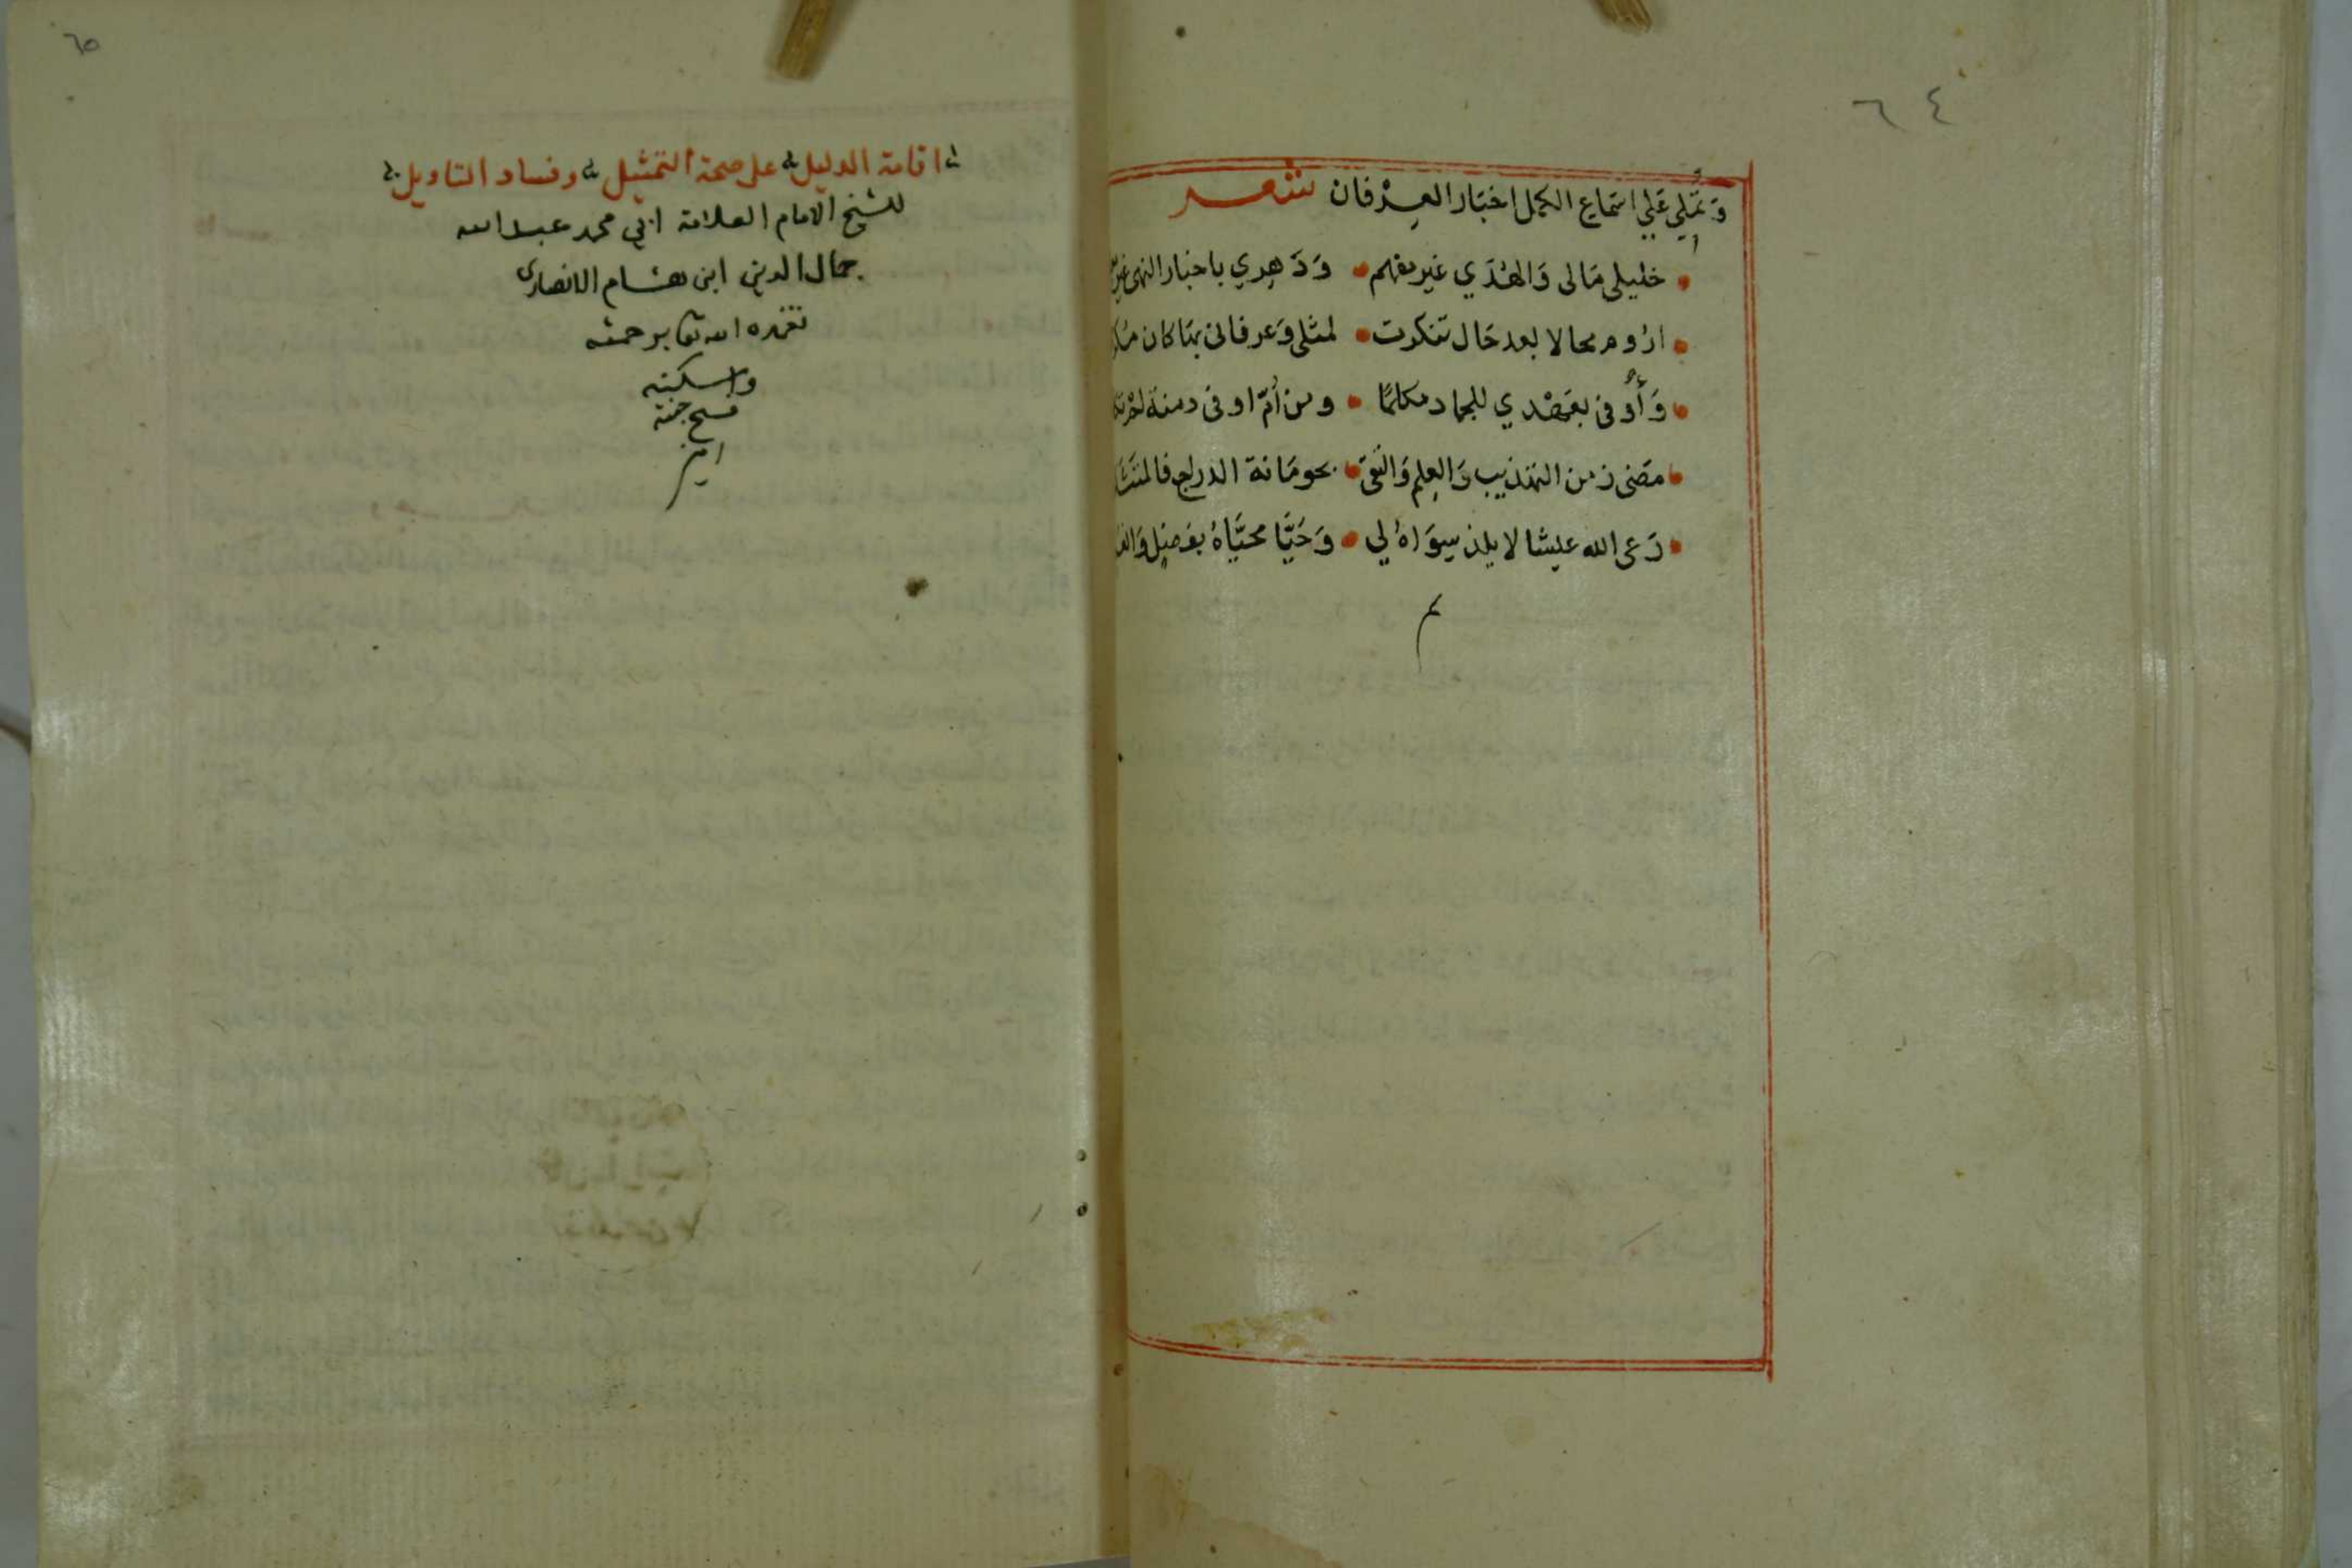 ٦٤
وَتملي عَلي اسَماع الكمل اخبَار العِرْفان شعر
خليلي مَالى وَالهُدَي غير مفهم وَدَهرِي باخبار النهى غير
ارُوم محالا بعد حَال تنكرت لمثلى وَعرفانى بمَا كان
وَأَوفى بقصْدي للجماد مكلمًا ومن أمّ اوفى دمنة لم
مضى زمن التهذيب وَالعِلم وَالتقى بحومَانة الدراج فالمتثلم
رَعى الله عيشا لا يلذ سِوَاهُ لي وَحَيَّا محيَّاهُ بفضلٍ
م
٦٥
اقامة الدليل على صحة التمثيل وفساد التاويل
للشيخ الامام العلامة ابي محمد عبد الله
جمال الدين ابن هشام الانصارى
تغمده الله تعا برحمته
واسكنه
فسيح جنته
امين